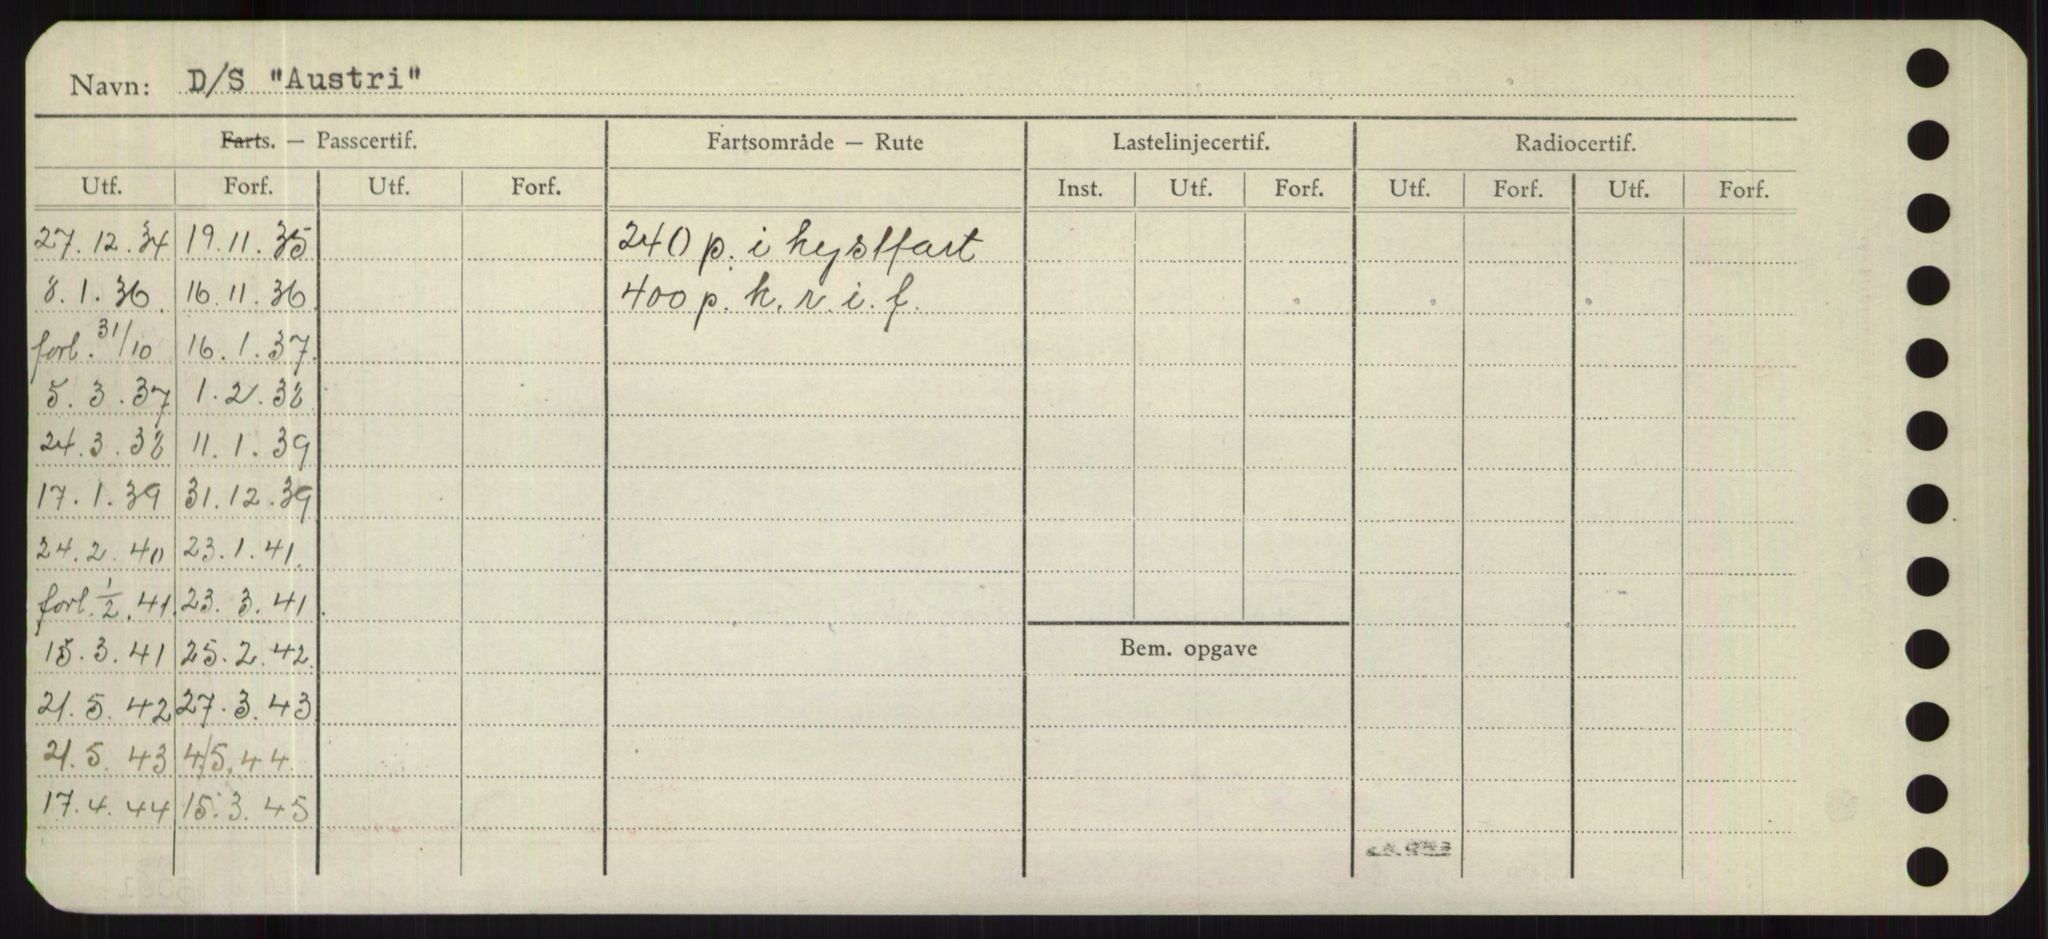 Navn: D/S "Austri"
Farts. — Passcertif. Fartsområde — Rute Lastelinjecertif. Radiocertif.
Utf. Forf. Utf. Forf. Inst. Utf. Forf. Utf. Forf. Utf. Forf.
27.12.34 19.11.35 240 p. i kystfart
8.1.36 16.11.36 400 p. k. r. i. f.
forl. 31/10 16.1.37
5.3.37 1.2.38
24.3.38 11.1.39
17.1.39 31.12.39
24.2.40 23.1.41
forl. 1/2.41 23.3.41
15.3.41 25.2.42 Bem. opgave
21.5.42 27.3.43
21.5.43 4/5.44
17.4.44 15.3.45